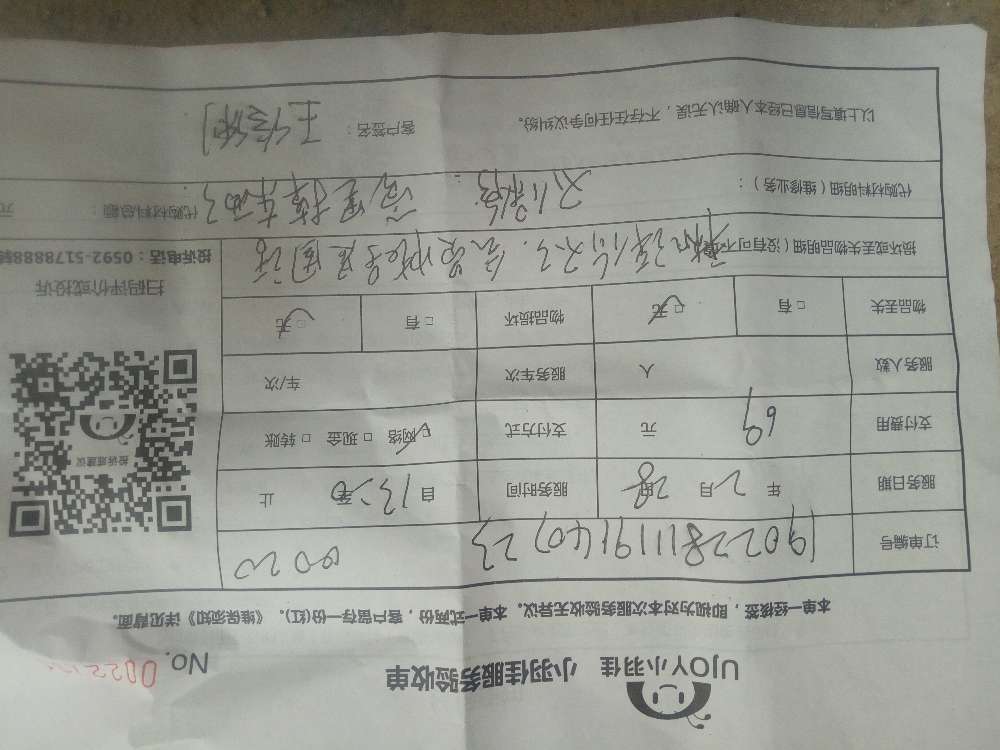 UJOY小羽佳 小羽佳服务验收单
No. 0022
本单一经核签，即视为对本次服务验收无异议。本单一式两份，客户留存一份(红)。《维保须知》详见背面。
订单编号 1902281119140723 0020
服务日期 年 2 月 28 服务时间 自 13:20 至 止
支付费用 69 元 支付方式 网络 □ 现金 □ 转账
服务人数 人 服务车次 车/次
物品丢失 □ 有 □ 无 物品损坏 □ 有 □ 无
损坏或丢失物品明细（没有可不写）：
代购材料明细（维修业务）： 代购材料总额： 元
以上填写信息已经本人确认无误，不存在任何争议纠纷。 客户签名：
投诉或建议
扫码评价或投诉
投诉电话：0592-5178888转